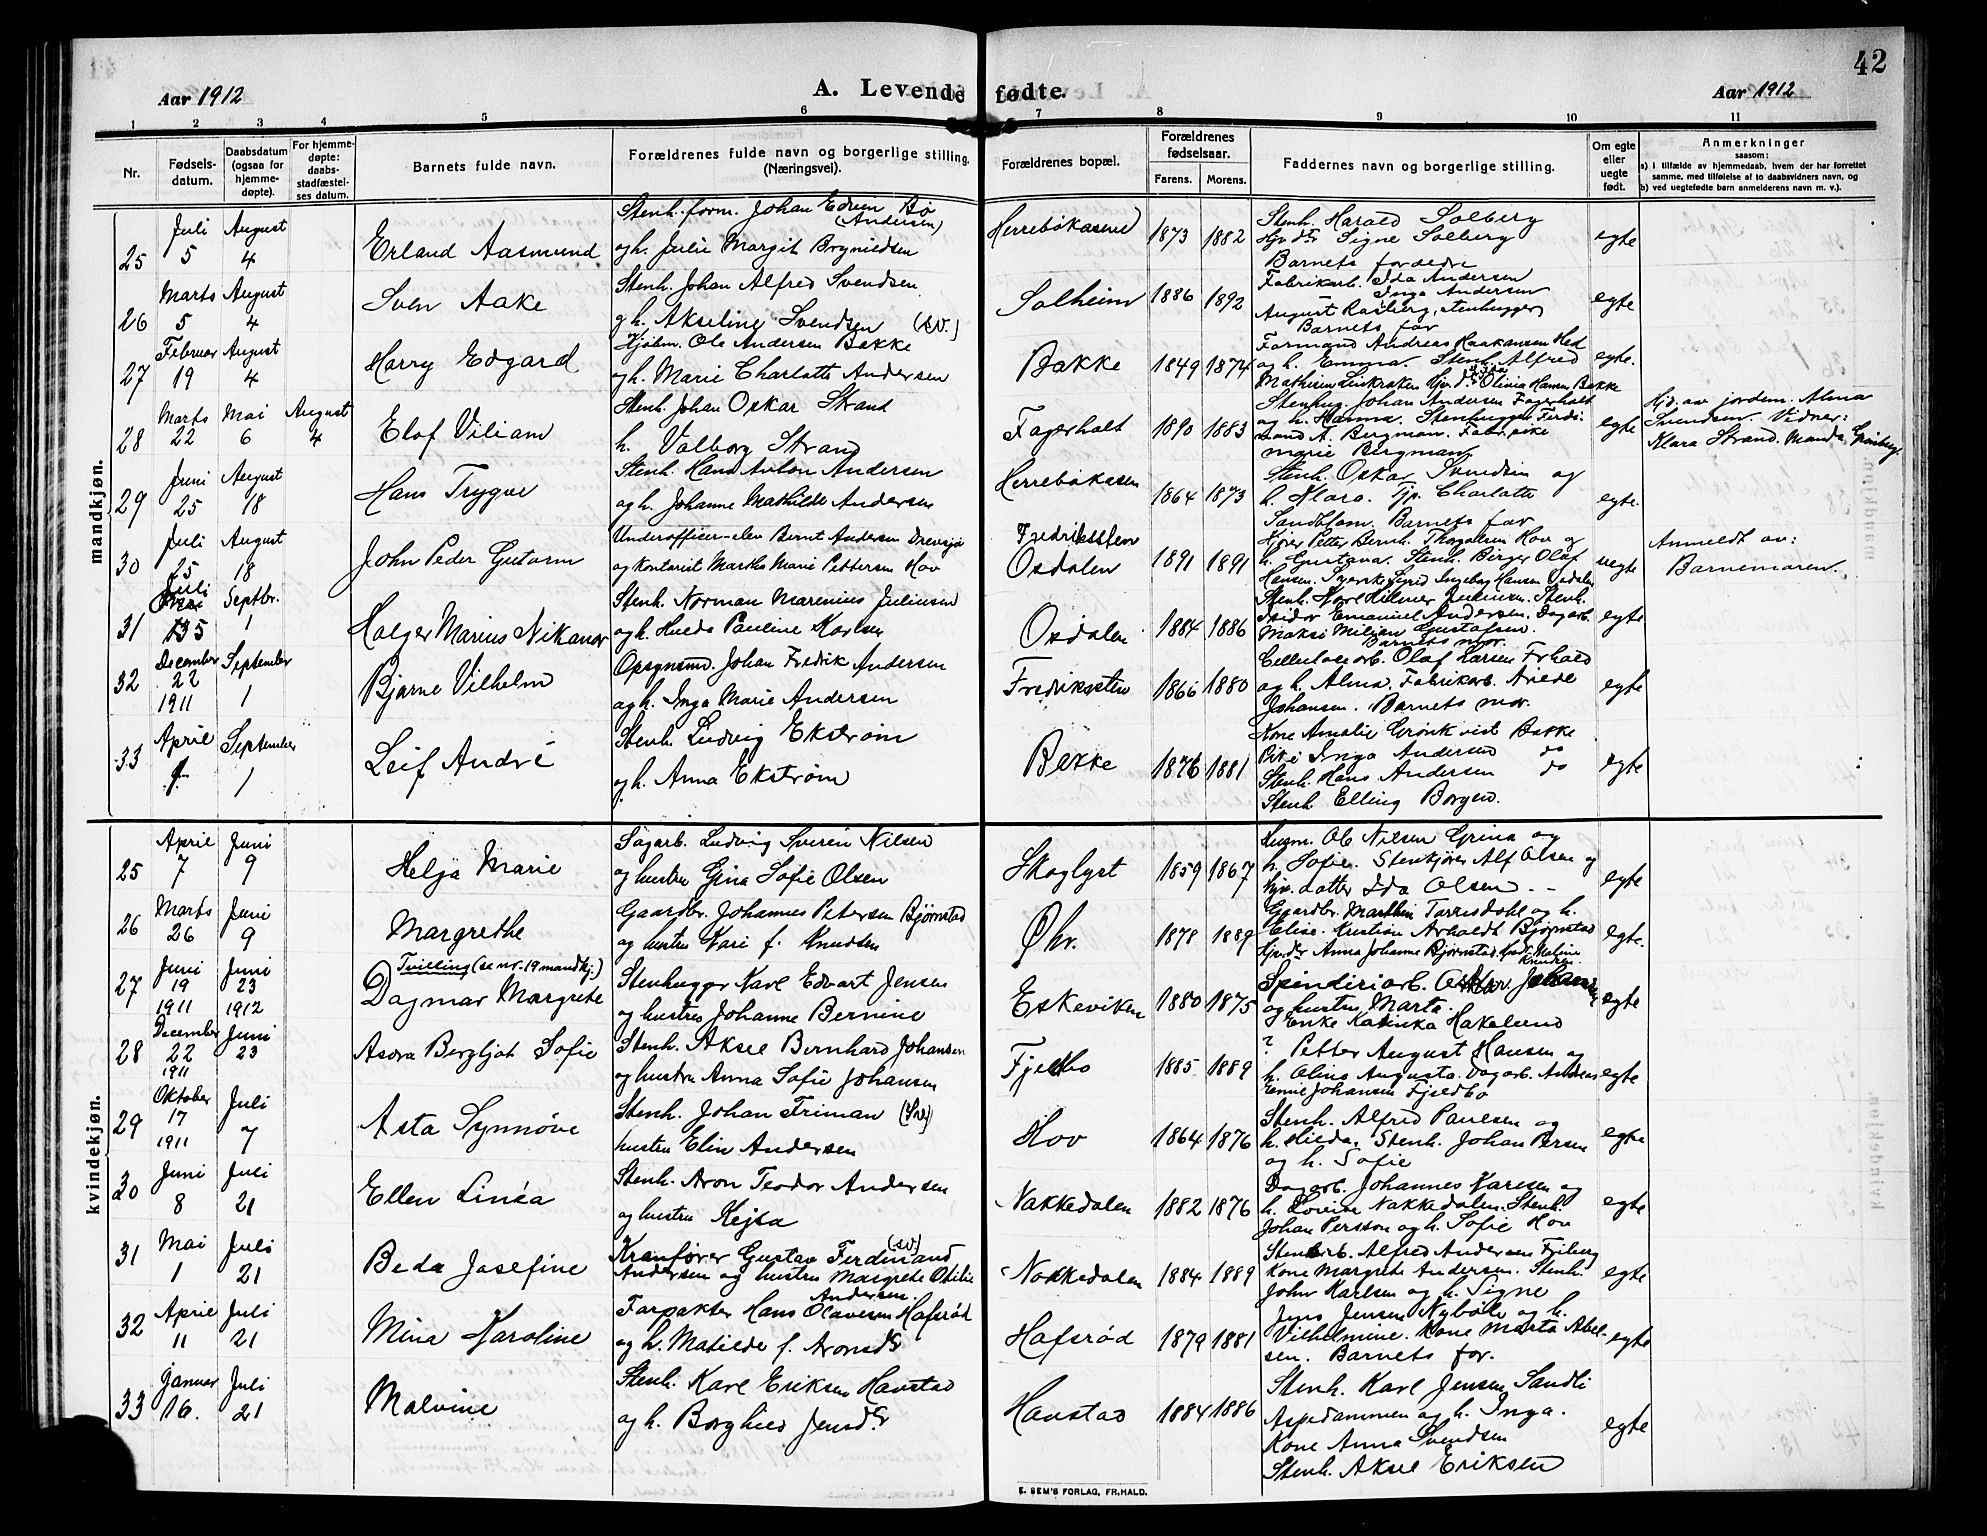 42
Aar 1912
A. Levende fødte.
Aar 1912
1 2 3 4 5 6 7 8 9 10 11
Nr.
Fødsels-datum.
Daabsdatum (ogsaa for hjemme-døpte).
For hjemme-døpte: daabs-stadfæstel-ses datum.
Barnets fulde navn.
Forældrenes fulde navn og borgerlige stilling. (Næringsvei).
Forældrenes bopæl.
Forældrenes fødselsaar.
Farens. Morens.
Faddernes navn og borgerlige stilling.
Om egte eller uegte født.
Anmerkninger
saasom:
a) i tilfælde av hjemmedaab, hvem der har forrettet samme, med tilføielse af to daabsvidners navn, og
b) ved uegtefødte barn anmelderens navn m. v.).
mandkjøn.
25 Juli 5 August 4 Erland Aasmund
Stenh. form. Johan Edvin Bø (Andersen)
og h. Julie Margit Brynildsen
Herrebøkasene 1873 1882
Stenh. Harald Solberg
Signe Solberg
Barnets forældre
egte
26 Marts 5 August 4 Sven Aake
Stenh. Johan Alfred Svendsen
og h. Akseline Svendsen (sv.)
Solheim 1886 1892
Fabrikarb. Ida Andersen
Inga Andersen
August Rasberg, stenhugger
Barnets far
egte
27 Februar 19 August 4 Harry Edgard
Ole Andersen Bakke
og h. Marie Charlotte Andersen
Bakke 1849 1874
Formand Andreas Haakansen Hed
og h. Emma. Stenh. Alfred
Mathisen Olivia Hansen Bakke
egte.
28 Marts 22 Mai 6 August 4 Elof Viliam
Stenh. Johan Oskar Strand
h. Valborg Strand
Fagerholt 1890 1883
Stenhug. Johan Andersen Fagerholt
og h. Hanna. Stenhugger Ferdi-
nand A. Bergman. Fabr. pike
Marie Bergman
egte
Hjd. av jordem. Alma
Svendsen. Vidner:
Klara Strand. Manda
29 Juni 25 August 18 Hans Trygve
Stenh. Hans Anton Andersen
og h. Johanne Mathilde Andersen
Herrebøkasen 1864 1873
Stenh. Oskar Svendsen og
h. Klara. Tj.p. Charlotte
Sandblom. Barnets far
egte.
30 Juli 25 August 18 John Peder Gutorm
Underofficer-elev Bernt Andersen Drevsjø
og kontorist Martha Marie Pettersen Hov
Fredriksten
Osdalen 1891 1891
Petter Bernh. Hov og
h. Gustava. Stenh. Birger Olaf
Hansen. Sigrid Ingeborg Hansen Osdalen
uegte
Anmeldt av:
Barnemoren.
31 Juli Septbr. 1 Holger Marius Nikanor
Stenh. Norman Marenius Juliusen
og h. Hulda Pauline Karlsen
Osdalen 1884 1886
Stenh. Karl Hilmer Juliusen. Stenh.
Isidor Emanuel Andersen. Dagarb.
Maksimilian Gustafsen.
Barnets mor.
egte
32 December 22 1911 September 1 Bjarne Vilhelm
Opsynsmd. Johan Fredrik Andersen
og h. Inga Marie Andersen
Fredriksten 1866 1880
Cellulosearb. Olaf Larsen Frhald
og h. Alma. Fabrikarb.
Johansen. Barnets mor.
egte
33 April 1 September 1 Leif André
Stenh. Ludvig Ekstrøm
og h. Anna Ekstrøm
Bakke 1876 1881
Kone Amalie Grønkvist Bakke
Pike Inga Andersen do
Stenh. Hans Andersen do
Stenh. Elling Borgen.
egte
kvindekjøn.
25 April 7 Juni 9 Helga Marie
Sagarb. Ludvig Nilsen
og hustru Gina Sofie Olsen
Skoglyst 1859 1867
Husm. Ole Nilsen Grina og
h. Sofie. Stenkjører Alf Olsen og
Hjv. datter Ida Olsen.
egte
26 Marts 26 Juni 9 Margrethe
Gaardbr. Johannes Petersen Bjørnstad
og hustru Kari f. Knudsen
Øhr. 1878 1889
Gaardbr. Marthin Torrisdahl og h.
Elise. Kristian Arholdt Bjørnstad
Anna Johanne Bjørnstad. Malene
Knudsen
egte.
27 Juni 19 1911 Juni 23 1912 Tvilling (se nr. 19 mandkj.)
Dagmar Margrete
Stenhugger Karl Edvart Jensen
og hustru Johanne Bernine
Eskeviken 1880 1875
Spinderiarb. Johansen
og hustru Marta.
Enke Katinka Hakelund
egte
28 December 22 1911 Juni 23 Asora Bergljot Sofie
Stenh. Aksel Bernhard Johansen
og hustru Anna Sofie Johansen
Fjeldbo 1885 1889
? Petter August Hansen og
h. Oline Augusta. Dagarb. Anders
Johansen Fjeldbo
egte
29 Oktober 17 1911 Juli 7 Asta Synnøve
Stenh. Johan Friman (Sv.)
hustru Elin Andersen
Hov 1864 1876
Stenh. Alfred Paulsen og
h. Hilda. Stenh. Johan Persen
og h. Sofie
egte
30 Juni 8 Juli 21 Ellen Linéa
Stenh. Aron Teodor Andersen
og hustru Kejsa
Nakkedalen 1882 1876
Dagarb. Johannes Karlsen og
h. Lovise Nakkedalen. Stenh.
Johan Persson og h. Sofie Hov
egte
31 Mai 1 Juli 21 Beda Josefine
Kranfører Gustav Ferdinand (sv.)
Andersen og hustru Margrete Otilie
Andersen.
Nakkedalen 1884 1889
Stenarb. Alfred Andersen Friberg
Kone Margrete Andersen. Stenh.
John Karlsen og h. Signe
egte
32 April 11 Juli 21 Mina Karoline
Forpakter Hans Olavesen Hafsrød
og h. Matilde f. Aronsdr.
Hafsrød 1879 1881
Jens Jensen Nybøle og h.
Vilhelmine. Kone Marta Abel-
sen. Barnets far.
egte
33 Januar 16. Juli 21 Malvine
Stenh. Karl Eriksen Havstad
og h. Borghild Jensdr.
Havstad 1884 1886
Stenh. Karl Jensen Sandli
Aspedammen og h. Inga.
Kone Anna Svendsen
Stenh. Aksel Eriksen
egte
E. SEM'S FORLAG, FR.HALD.